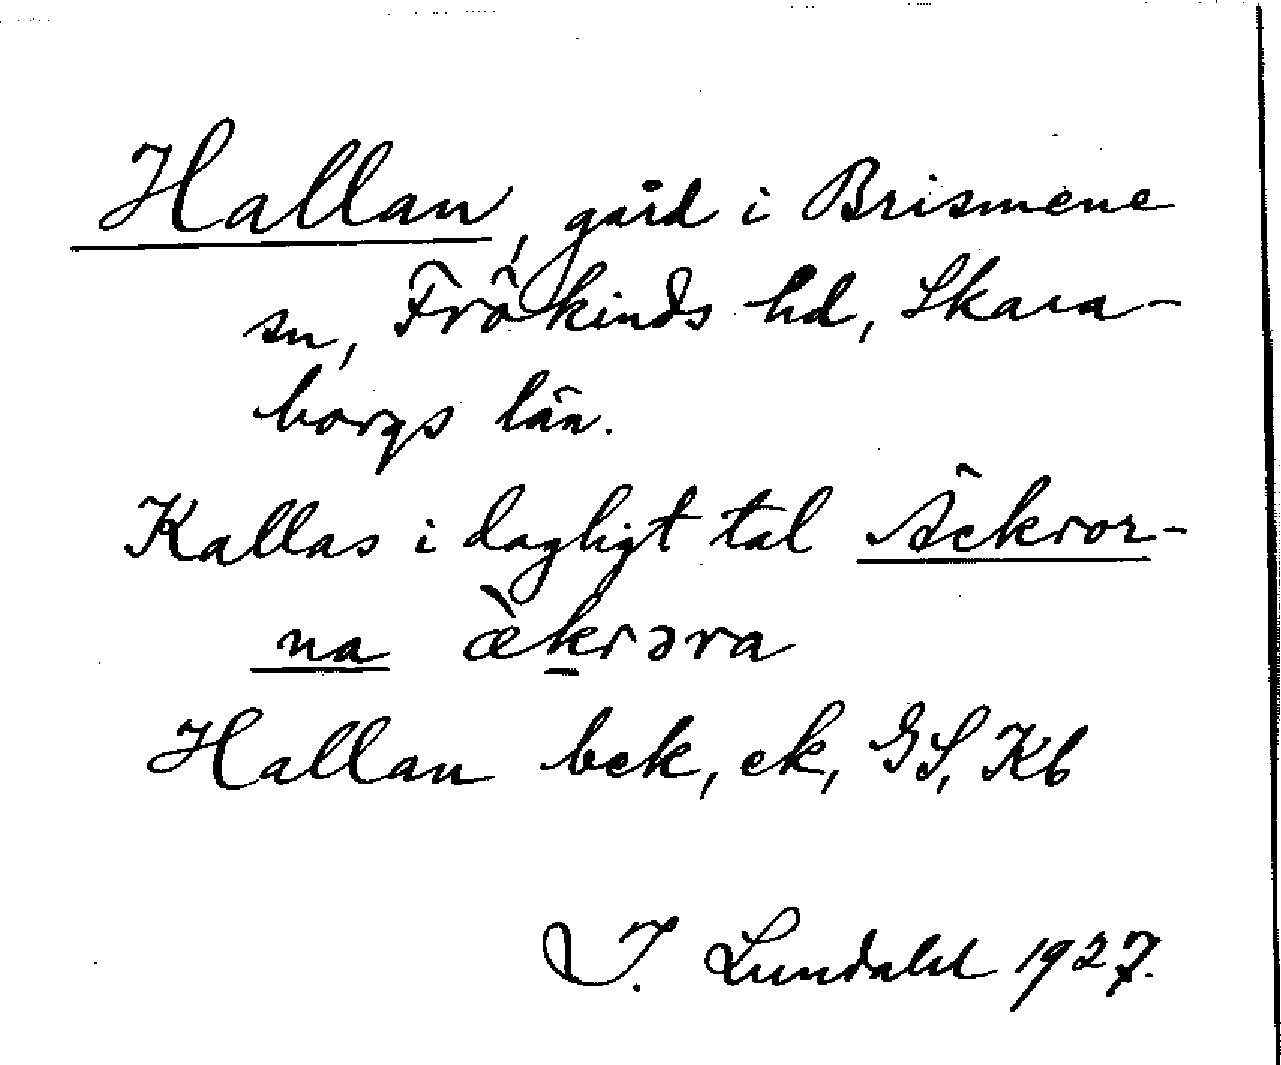 Hallan, gård i Brismene
sn, Frökinds hd, Skara-
borgs län.
Kallas i dagligt tal Äckror-
na æ̀krəra
Hallan bek, ek, GS, Kb
I. Lundahl 1927.